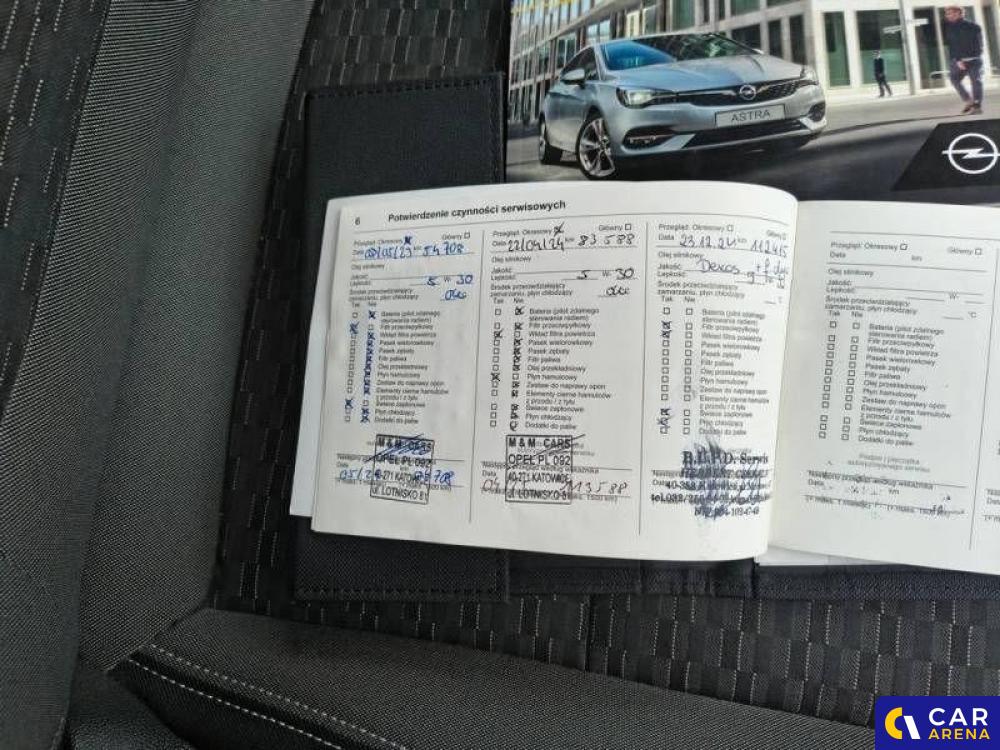 ASTRA
6 Potwierdzenie czynności serwisowych
Przegląd: Okresowy Główny
Data 05/23 km 54 708
Olej silnikowy
Jakość:
Lepkość: 5 W- 30
Środek przeciwdziałający
zamarzaniu, płyn chłodzący
Tak Nie
Bateria (pilot zdalnego
sterowania radiem)
Filtr przeciwpyłkowy
Wkład filtra powietrza
Pasek wielorowkowy
Pasek zębaty
Filtr paliwa
Olej przekładniowy
Płyn hamulcowy
Zestaw do naprawy opon
Elementy cierne hamulców
z przodu / z tyłu
Świece zapłonowe
Płyn chłodzący
Dodatki do paliw
M & M CARS
OPEL PL 092
40-271 KATOWICE
ul. LOTNISKO 81
Data
Przegląd: Okresowy Główny
Data 22/04/24 km 83 588
Olej silnikowy
Jakość:
Lepkość: 5 W- 30
Środek przeciwdziałający
zamarzaniu, płyn chłodzący
Tak Nie
Bateria (pilot zdalnego
sterowania radiem)
Filtr przeciwpyłkowy
Wkład filtra powietrza
Pasek wielorowkowy
Pasek zębaty
Filtr paliwa
Olej przekładniowy
Płyn hamulcowy
Zestaw do naprawy opon
Elementy cierne hamulców
z przodu / z tyłu
Świece zapłonowe
Płyn chłodzący
Dodatki do paliw
M & M CARS
OPEL PL 092
40-271 KATOWICE
ul. LOTNISKO 81
113588
Przegląd: Okresowy Główny
Data 23.12.24 km 112415
Olej silnikowy
Jakość: Dexos
Lepkość:
Środek przeciwdziałający
zamarzaniu, płyn chłodzący °C
Tak Nie
Bateria (pilot zdalnego
sterowania radiem)
Filtr przeciwpyłkowy
Wkład filtra powietrza
Pasek wielorowkowy
Pasek zębaty
Filtr paliwa
Olej przekładniowy
Płyn hamulcowy
Zestaw do naprawy opon
Elementy cierne hamulców
z przodu / z tyłu
Świece zapłonowe
Płyn chłodzący
Dodatki do paliw
Serwis
Przegląd: Okresowy Główny
Data km
Olej silnikowy
Jakość:
Lepkość: W-
Środek przeciwdziałający
zamarzaniu, płyn chłodzący °C
Tak Nie
Bateria (pilot zdalnego
sterowania radiem)
Filtr przeciwpyłkowy
Wkład filtra powietrza
Pasek wielorowkowy
Pasek zębaty
Filtr paliwa
Olej przekładniowy
Płyn hamulcowy
Zestaw do naprawy opon
Elementy cierne hamulców
z przodu / z tyłu
Świece zapłonowe
Płyn chłodzący
Dodatki do paliw
Podpis i pieczątka
autoryzowanego serwisu
Następny przegląd według wskaźnika
Data km
CAR
ARENA